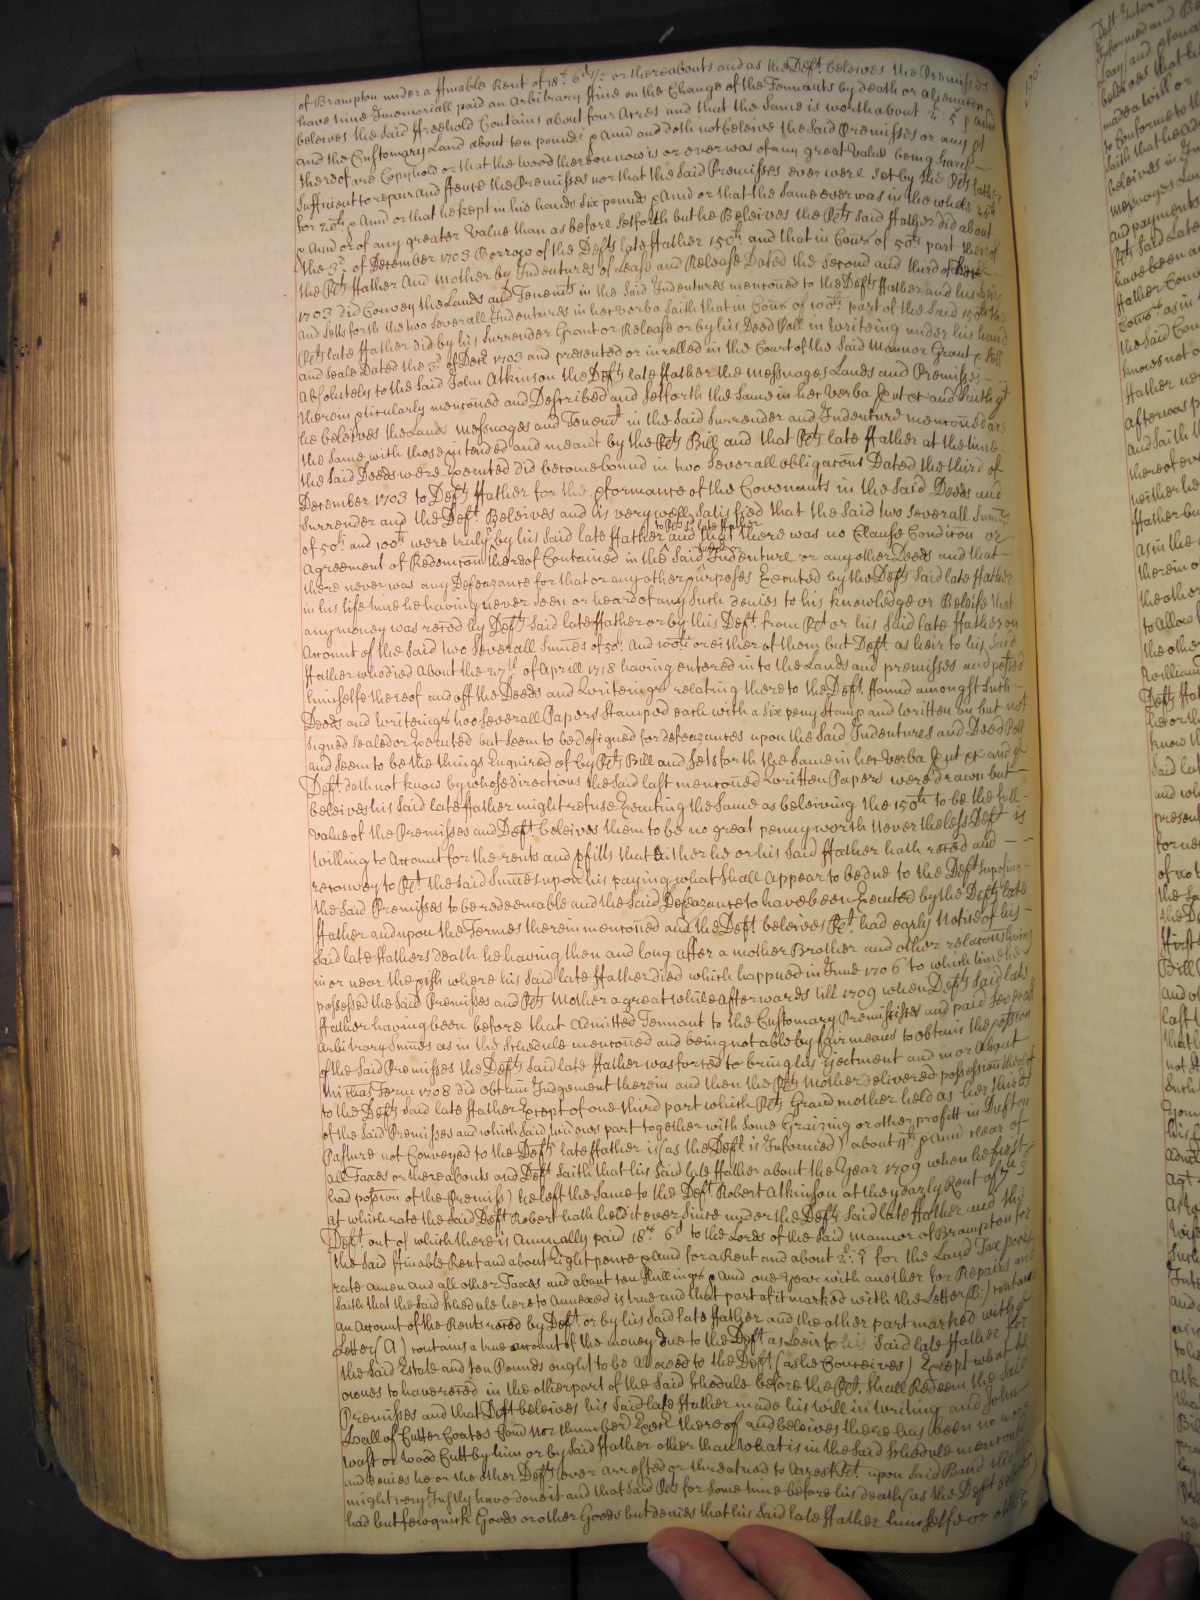 of Brampton under a ffinable Rent of 18s. 6d 1/2 or thereabouts and as the Deft. beleives the Premisses
have time Immoriall paid an Arbitrary ffine on the Change of the Tennants by death or alienacon and
beleives the said ffreehold Contains about four Acres and that the same is worth about
and the Customary Land about ten pounds p Ann and doth not beleive the said Premisses or any pt
thereof are Copyhold or that the wood thereon now is or ever was of any great Value being scarce
sufficient to repair and ffence the Premisses nor that the said Premisses ever were set by the Pets father
for p Ann or that he kept in his hands six pounds p Ann or that the same ever was in the whole
p Ann or of any greater Value than as before setforth but he Beleives the Pets said ffather did about
the 3d. of December 1703 Borrow of the Defts late ffather 150li and that in Conr. of 50li part thereof
the Pets ffather And Mother by Indentures of Lease and Release Dated the second and third of
1703 did Convey the Lands and Tenemts in the said Indentures menconed to the Defts ffather and his heirs
and setts forth the two severall Indentures in haec verba saith that in Conr of 100li part of the said 150li the
Pets late ffather did by his Surrender Grant or Release or by his Deed Poll in Writeing under his hand
and seale Dated the 3d. of Decr 1703 and presented or inrolled in the Court of the said Mannor Grant & sell
absolutely to the said John Atkinson the Defts late ffather the Messuages Lands and Premisses
therein pticularly menconed and Described and setforth the same in haec verba Prout &c and saith yt
he beleives the Lands Messuages and Tenemt in the said Surrender and Indenture menconed are
the same with those intended and meant by the Pets Bill and that Pets late ffather at the time
the said Deeds were Executed did become bound in two severall obligacons Dated the third of
December 1703 to Defts ffather for the pformance of the Covenants in the said Deeds and
Surrender and the Deft. Beleives and is very well satisfied that the said two severall Summes
of 50li and 100li were truly by his said late ffather to Pets late ffather and that there was no Clause Condicon or
Agreement of Redempcon thereof Contained in the said Indenture or any other Deeds and that
there never was any Defeazance for that or any other purposes Executed by the Defts said late ffather
in his life time he having never seen or heard of any such denies to his knowledge or Beleife that
any money was reced by Defts said late ffather or by this Deft. from Pet or his said late ffather on
Account of the said two severall Summes of 50li. And 100li or either of them but Deft. as heir to his said
ffather who died About the 27th of Aprill 1718 having entered in to the Lands and premisses and possed
himselfe thereof and off the Deeds and Writeings relating thereto the Deft. ffound amongst such
Deeds and Writeings two severall Papers stamped each with a six peny stamp and written on but not
signed sealed or Executed but seem to be designed for defeazances upon the said Indentures and Deed Poll
and seem to be the things Enquired of by Pets Bill and sets forth the same in haec verba Prout &c and ye
Deft. doth not know by whose directions the said last menconed Written Papers were drawn but
beleives his said late ffather might refuse Executing the same as beleiving the 150li to be the full
value of the Premisses and Deft. beleives them to be no great penny worth Nevertheless Deft is
willing to Account for the rents and pfitts that Either he or his said ffather hath reced and
reconvey to Pet. the said Summes upon his paying what shall appear to be due to the Deft supposing
the said Premisses to be redeemable and the said Defeazance to have been Executed by the Defts late
ffather and upon the Termes therein menconed and the Deft beleives Pet. had early Notice of his
said late ffathers death he having then and long after a mother Brother and other relacons living
in or near the pish where his said late ffather died which happned in June 1706 to which time he
possessed the said Premisses and Pets Mother a great while afterwards till 1709 when Defts said late
ffather having been before that Admitted Tennant to the Customary Premississes and paid severall
Arbitrary Summes as in the Schedule menconed and being not able by fair means to obtain the possion
of the said Premisses the Defts said late ffather was forced to bring his Ejectment and in or about
Michas Term 1708 did obtain Judgement therein and then the Pets Mother delivered possession thereof
to the Defts said late ffather Except of one third part which Pets Grandmother held as her thirds
of the said Premisses and which said widows part together with some Graizing or other profitt in Dufton
Pasture not Conveyed to the Defts late ffather is (as the Deft is Informed) about p ann clear of
all Taxes or thereabouts and Deft saith that his said late ffather about the Year 1709 when he first
had possion of the Premiss) he left the same to the Deft Robert Atkinson at the yearly Rent of
at which rate the said Deft Robert hath held it ever since under the Defts said late ffather and the
Deft. out of which there is Annually paid 18s. 6d to the Lords of the said mannor of Brampton for
the said ffinable Rent and about Eight pence p ann for a Rent and about for the Land Tax poor
rate Amen and all other Taxes and about ten shillings p And one year with another for Repairs and
saith that the said Schedule hereto Annexed is true and that part of it marked with the Letter (B:) contains
an Account of the Rents reced by Deft. or by his said late ffather and the other part marked with ye
Letter (A) contains a true account of the money due to the Deft as heir to his said late ffather for
the said Estate and ten Pounds ought to be allowed to the Deft (as he Conceives) Except what he
ownes to have reced in the other part of the said Schedule before the Pet. shall Redeem the said
Premisses and that Deft beleives his said late ffather made his will in Writing and John
Wall of Cutter Coates Com Northumberld Exer thereof and beleives there has been no more
wast or Wood Cutt by him or by said ffather other than what is in the said Schedule menconed
and denies he or the other Defts ever arrested or threatned to Arrest Pet. upon said Bond tho he
might very Justly have done it and that said Pets for some time before his death (as the Deft
had but few quick Goods or other Goods but denies that his said late ffather himselfe or